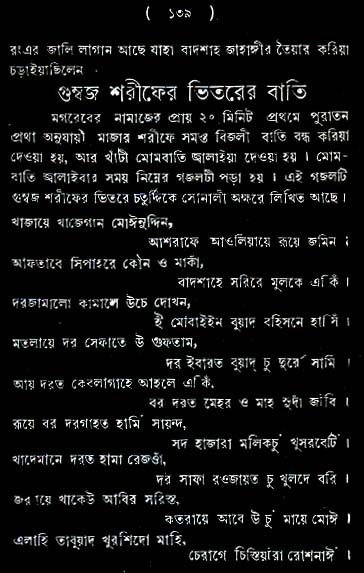 ( ১৩৯ )
রংএর জালি লাগান আছে যাহা বাদশাহ জাহাঙ্গীর তৈয়ার করিয়া
চড়াইয়াছিলেন
গুম্বজ শরীফের ভিতরের বাতি
মগরেবের নামাজের প্রায় ২০ মিনিট প্রথমে পুরাতন
প্রাথা অনুযায়ী মাজার শরীফে সমস্ত বিজলী বাতি বন্ধ করিয়া
দেওয়া হয়, আর খাঁটী মোমবাতি জ্বালাইয়া দেওয়া হয় । মোম-
বাতি জ্বালাইবার সময় নিম্নের গজলটী পড়া হয় । এই গজলটি
গুম্বজ শরীফের ভিতরে চতুর্দ্দিকে সোনালী অক্ষরে লিখিত আছে ।
খাজায়ে খাজেগান মোঈনুদ্দিন,
আশরাফে আওলিয়ায়ে রূয়ে জমিন ।
আফতাবে সিপাহরে কৌন ও মাকাঁ,
বাদশাহে সরিরে মুলকে একিঁ ।
দরজামালো কামালে উচে দোখন,
ই মোবাইইন বুয়াদ বহিসনে হাসিঁ ।
মতলায়ে দর সেফাতে উ গুফতাম,
দর ইবারত বুয়াদ্ চু ছুর্রে সামি ।
আয় দরত কেবলাগাহে আহলে একিঁ,
বর দরত মেহর ও মাহ সুদাঁ জাবি ।
রূয়ে বর দরগাহত হামিঁ সায়ন্দ,
সদ হাজারা মলিকচুঁ খুসরবেচিঁ ।
খাদেমানে দরত হামা রেজওাঁ,
দর সাফা রওজায়ত চু খুলদে বরি ।
থাকেউ আবির সরিস্ত,
কতরায়ে আবে উ চুঁ মায়ে মোঈঁ ।
এলাহি তাবুয়াদ খুরশিদো মাহি,
চেরাগে চিস্তিয়াঁরা রোশনাঈঁ ।